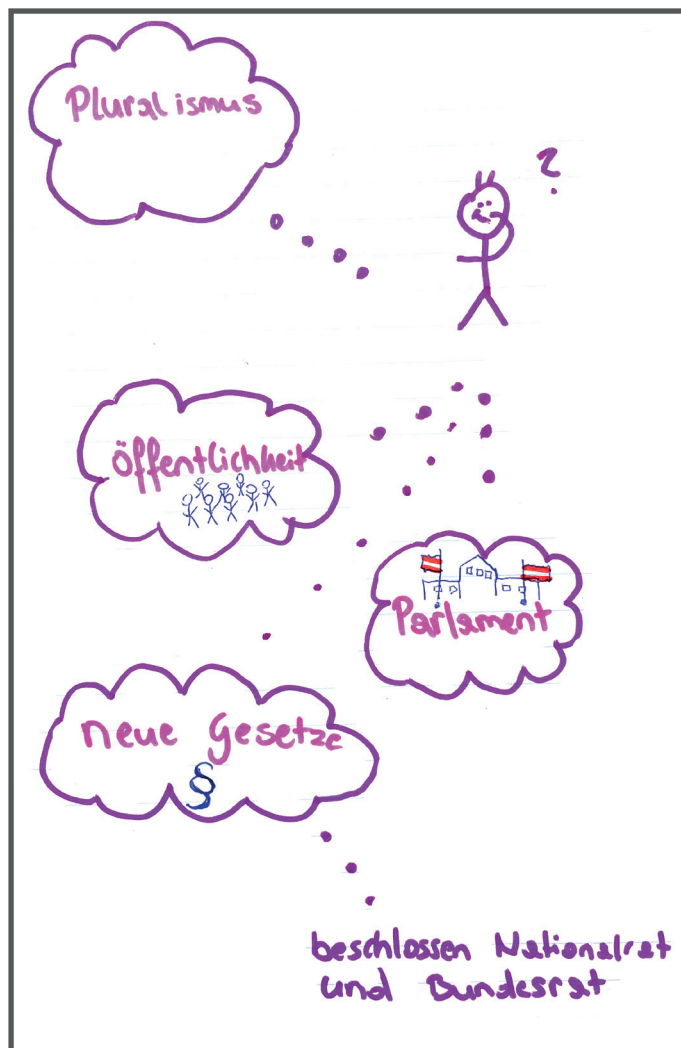 Pluralismus
?
öffentlichkeit
Parlament
neue Gesetze
§
beschlossen Nationalrat
und Bundesrat